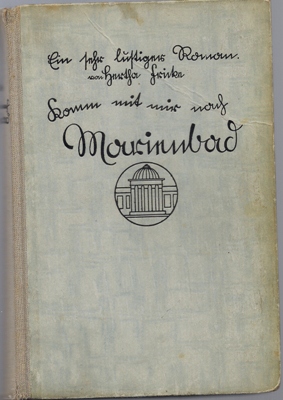 Ein sehr lustiger Roman.
von Hertha Fricke
Komm mit mir nach
Marienbad